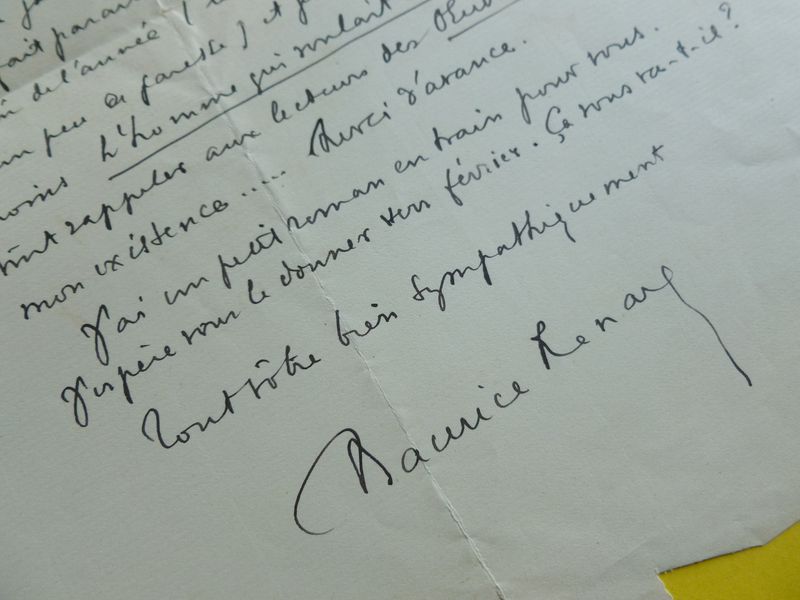 fait
de l'année
un peu de paresse) et
moins L'homme qui voulait
rappeler aux lecteurs des Oeuv
mon existence..... Merci d'avance.
J'ai un petit roman en train pour vous.
J'espère vous le donner vers février. Ça vous va-t-il?
Tout vôtre bien sympathiquement
Maurice Renard